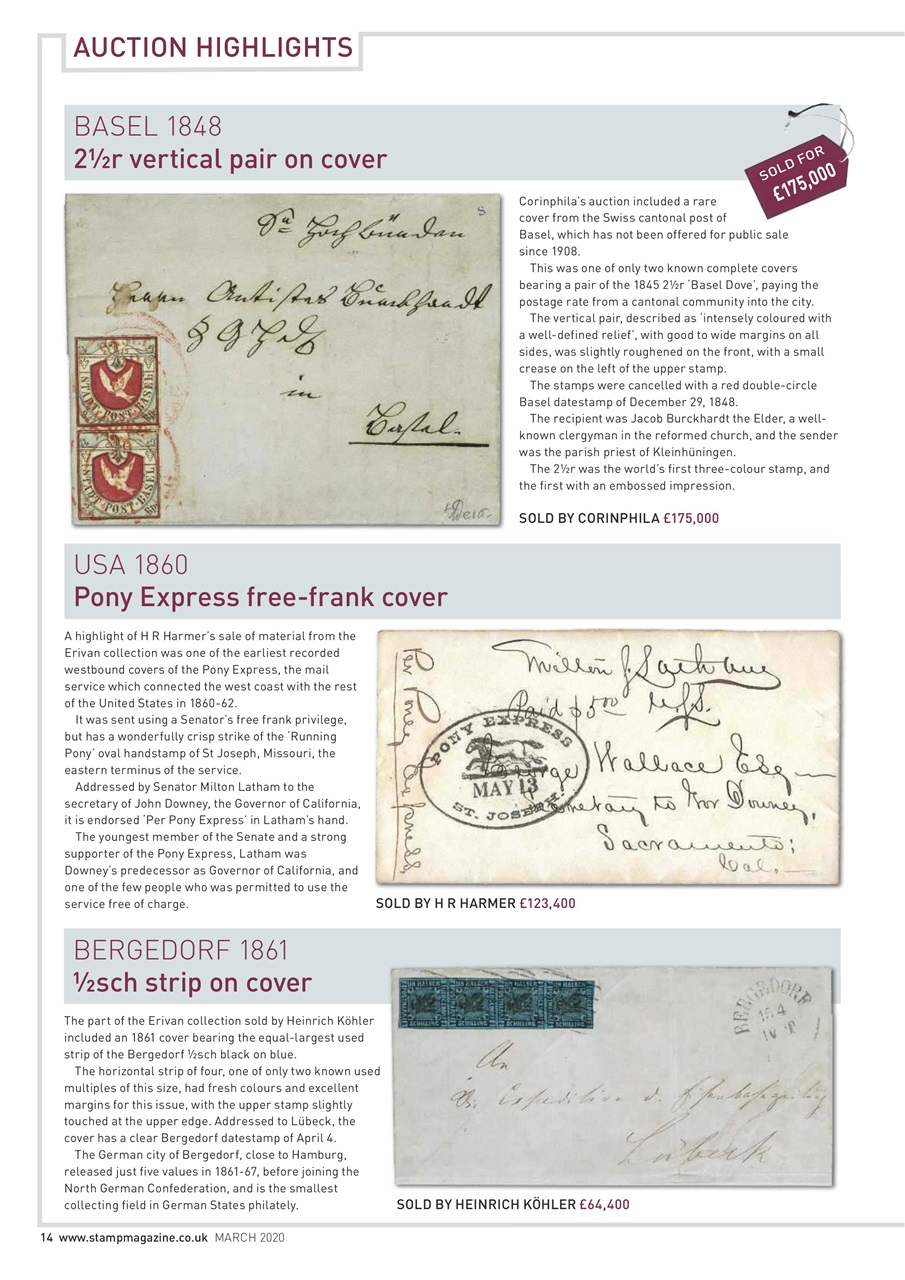 AUCTION HIGHLIGHTS
BASEL 1848
2½r vertical pair on cover
SOLD FOR
£175,000
Corinphila's auction included a rare
cover from the Swiss cantonal post of
Basel, which has not been offered for public sale
since 1908.
This was one of only two known complete covers
bearing a pair of the 1845 2½r 'Basel Dove', paying the
postage rate from a cantonal community into the city.
The vertical pair, described as 'intensely coloured with
a well-defined relief', with good to wide margins on all
sides, was slightly roughened on the front, with a small
crease on the left of the upper stamp.
The stamps were cancelled with a red double-circle
Basel datestamp of December 29, 1848.
The recipient was Jacob Burckhardt the Elder, a well-
known clergyman in the reformed church, and the sender
was the parish priest of Kleinhüningen.
The 2½r was the world's first three-colour stamp, and
the first with an embossed impression.
SOLD BY CORINPHILA £175,000
in
Basel.
STADT-POST-BASEL
STADT-POST-BASEL
USA 1860
Pony Express free-frank cover
A highlight of H R Harmer's sale of material from the
Erivan collection was one of the earliest recorded
westbound covers of the Pony Express, the mail
service which connected the west coast with the rest
of the United States in 1860-62.
It was sent using a Senator's free frank privilege,
but has a wonderfully crisp strike of the 'Running
Pony' oval handstamp of St Joseph, Missouri, the
eastern terminus of the service.
Addressed by Senator Milton Latham to the
secretary of John Downey, the Governor of California,
it is endorsed 'Per Pony Express' in Latham's hand.
The youngest member of the Senate and a strong
supporter of the Pony Express, Latham was
Downey's predecessor as Governor of California, and
one of the few people who was permitted to use the
service free of charge.
Per Pony Express
Milton S Latham
Paid $5.00
PONY EXPRESS
MAY 13
ST. JOSEPH.
George Wallace Esq
Secretary to Gov Downey,
Sacramento;
Cal.
SOLD BY H R HARMER £123,400
BERGEDORF 1861
½sch strip on cover
The part of the Erivan collection sold by Heinrich Köhler
included an 1861 cover bearing the equal-largest used
strip of the Bergedorf ½sch black on blue.
The horizontal strip of four, one of only two known used
multiples of this size, had fresh colours and excellent
margins for this issue, with the upper stamp slightly
touched at the upper edge. Addressed to Lübeck, the
cover has a clear Bergedorf datestamp of April 4.
The German city of Bergedorf, close to Hamburg,
released just five values in 1861-67, before joining the
North German Confederation, and is the smallest
collecting field in German States philately.
BERGEDORF
An
Lübeck
SOLD BY HEINRICH KÖHLER £64,400
14 www.stampmagazine.co.uk MARCH 2020